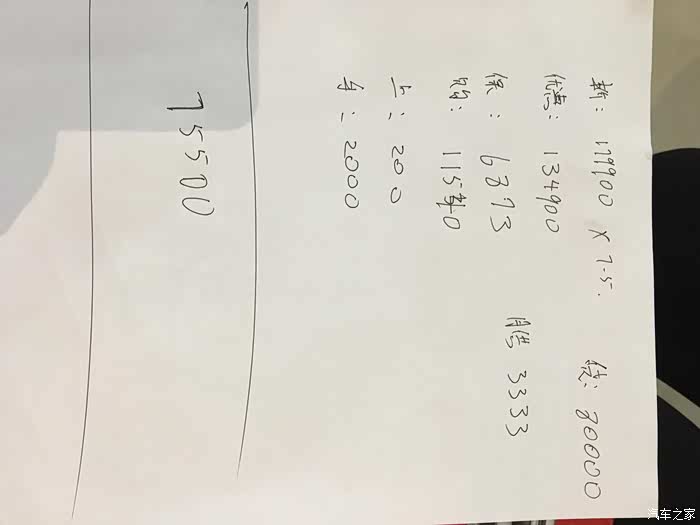 新: 179900 × 7.5. 贷: 80000
优惠: 134900
保: 6873 月供 3333
购: 11540
上: 200
: 2000
75500
汽车之家